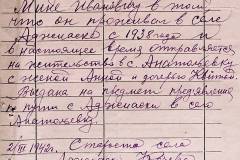 Мине Ивановичу в том
что он проживал в селе
Аджиаска с 1938 года и
в настоящее время отправляется
на жительство в с. Анатольевку
с женой Анной и дочерью
Выдана на предмет предявления
в пути с Аджиаски в село
Анатольевку.
2/III 1942г. Староста села